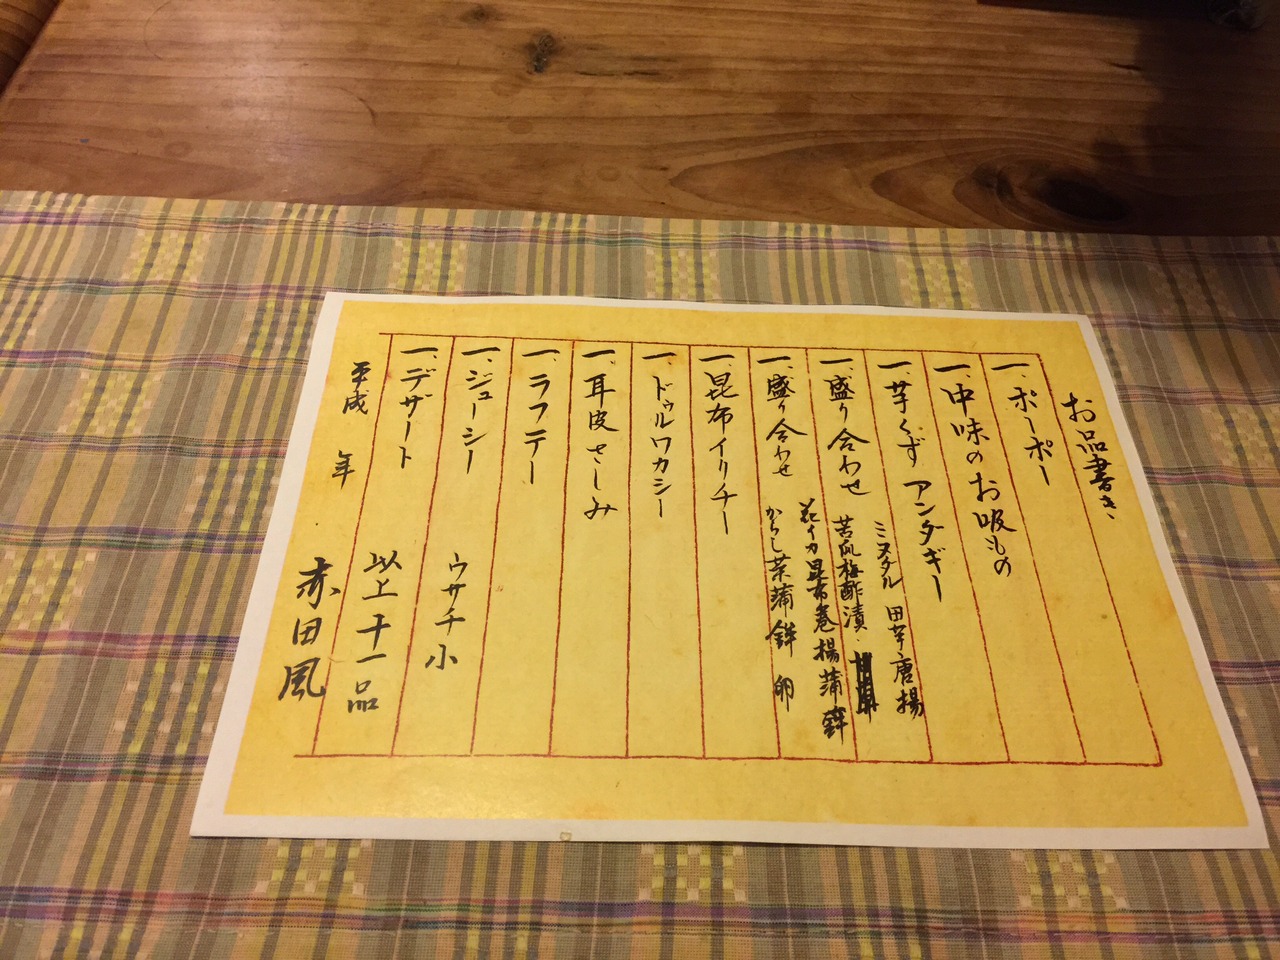 お品書き
一、ポーポー
一、中味のお吸もの
一、芋くずアンダギー
一、盛り合わせ
ミヌダル 田芋唐揚
苦瓜梅酢漬
一、盛り合わせ
花イカ 昆布巻 揚蒲鉾
からし菜蒲鉾 卵
一、昆布イリチー
一、ドゥルワカシー
一、耳皮さしみ
一、ラフテー
一、ジューシー
ウサチ小
一、デザート
以上十一品
平成 年
赤田風